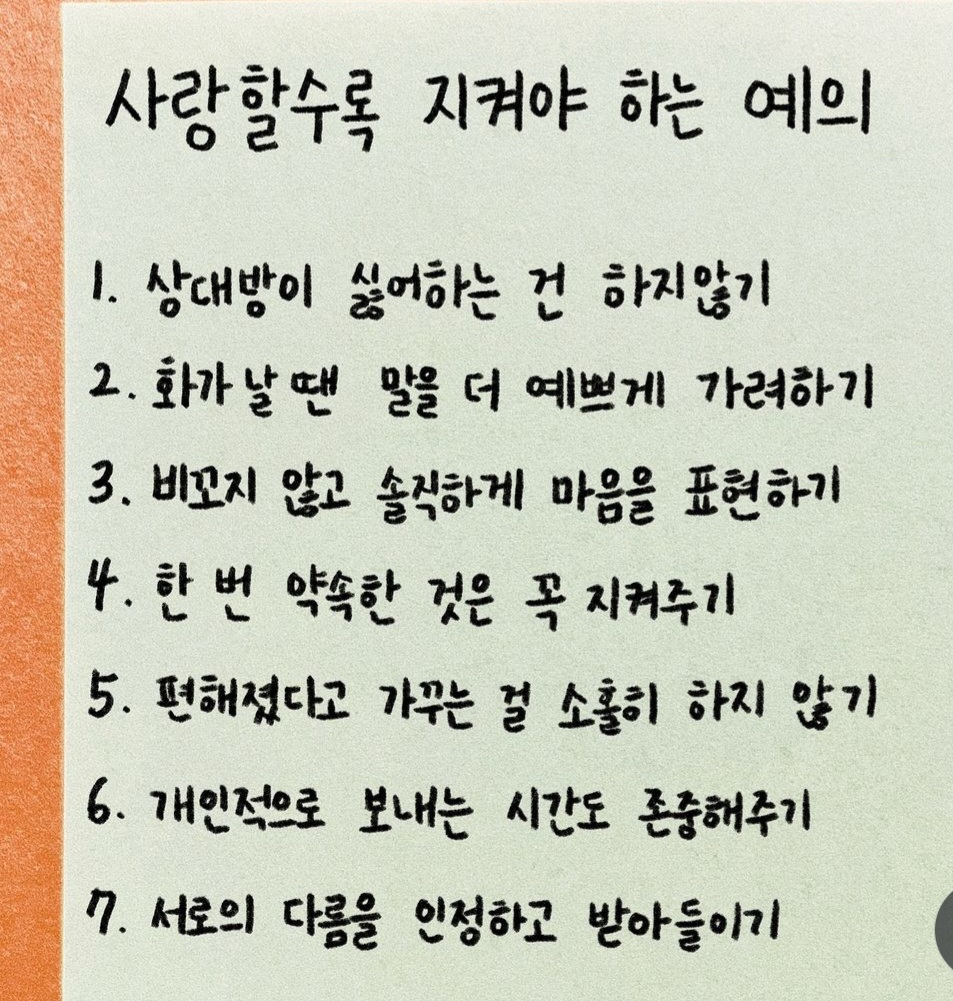 사랑할수록 지켜야 하는 예의
1. 상대방이 싫어하는 건 하지않기
2. 화가 날 땐 말을 더 예쁘게 가려하기
3. 비꼬지 않고 솔직하게 마음을 표현하기
4. 한 번 약속한 것은 꼭 지켜주기
5. 편해졌다고 가꾸는 걸 소홀히 하지 않기
6. 개인적으로 보내는 시간도 존중해주기
7. 서로의 다름을 인정하고 받아들이기